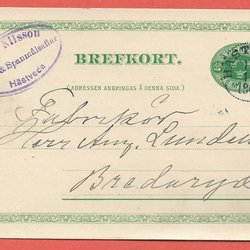 Nilsson
& Spanmålsaffär
Hästveda
BREFKORT.
(ADRESSEN ANBRINGAS Å DENNA SIDA.)
Fabrikör
Herr Aug. Lunden
Bredaryd